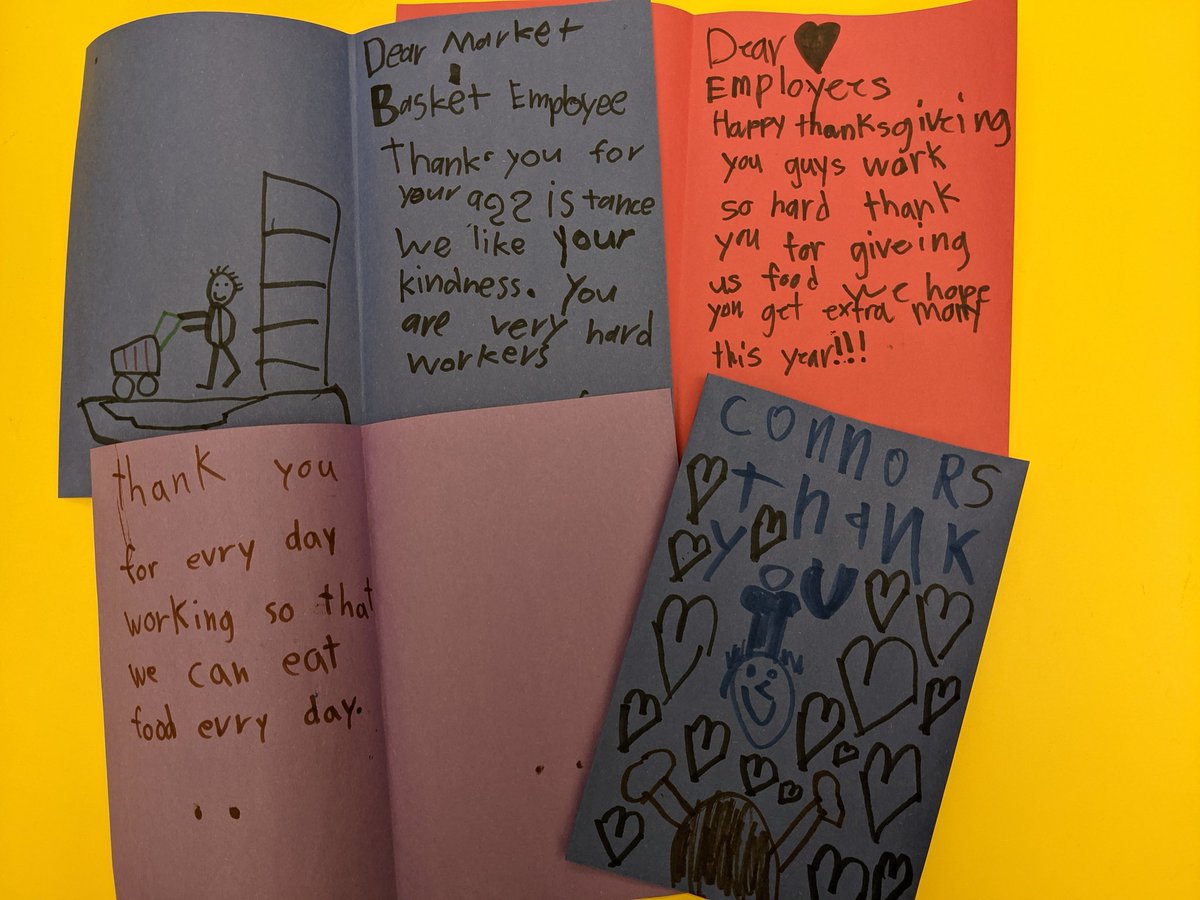 Dear Market
Basket Employee
Thank you for
your assistance
We like your
kindness. You
are very hard
workers
Dear
Employers
Happy thanksgiveing
you guys work
so hard thank
you for giveing
us food we hope
you get extra mony
this year!!!
thank you
for evry day
working so that
we can eat
food evry day.
CONNORS
Thank
you